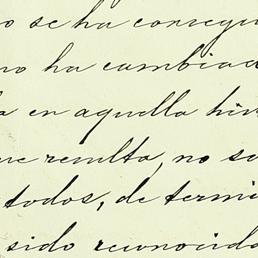 o se ha consegu
no ha cambiad
a en aquella his
ue resulta, no so
todos, de termi
sido reconocida